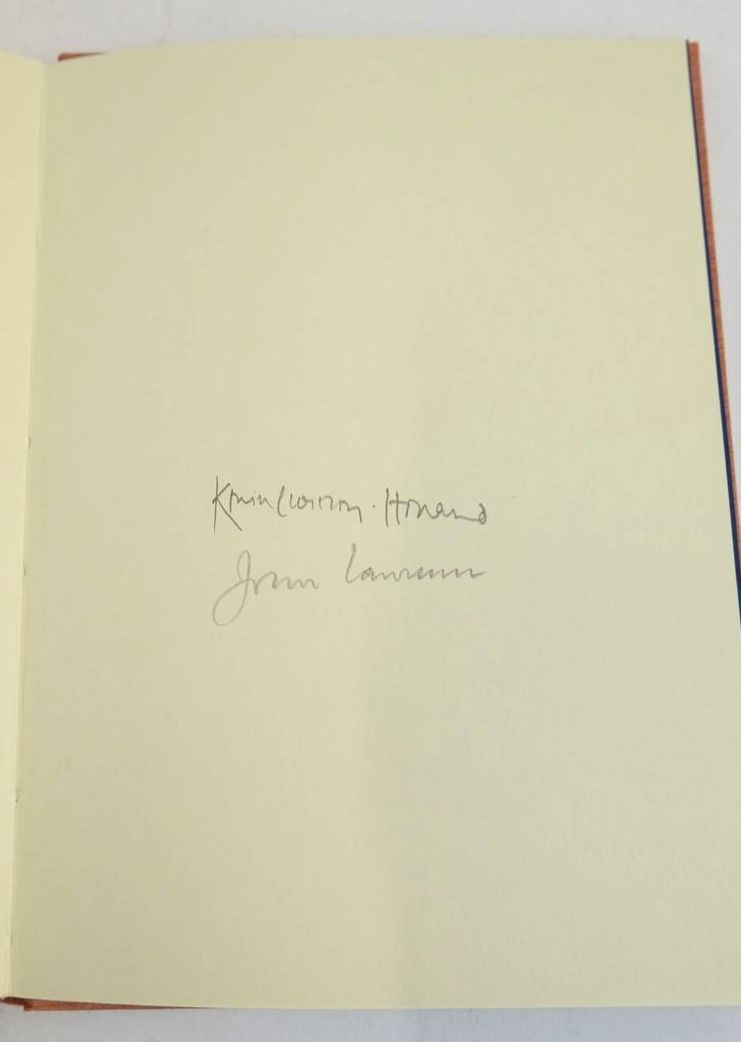 Kevin Crossley-Holland
John Lawrence